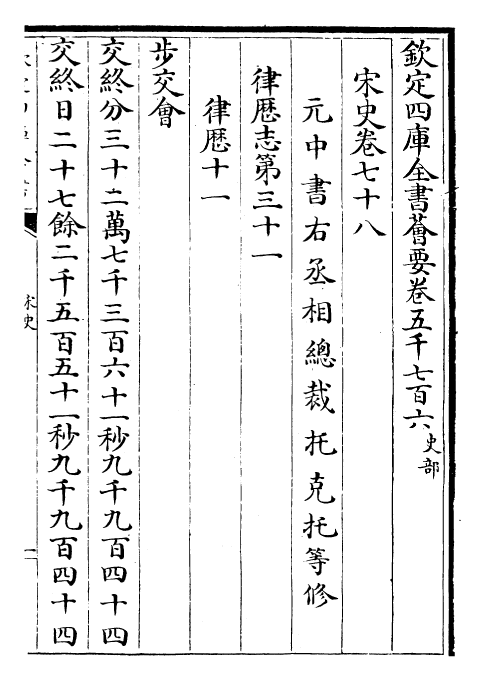 欽定四庫全書薈要卷五千七百六史部
宋史卷七十八
元中書右丞相總裁托克托等修
律厯志第三十一
律厯十一
步交會
交終分三十二萬七千三百六十一秒九千九百四十四
交終日二十七餘二千五百五十一秒九千九百四十四
宋史